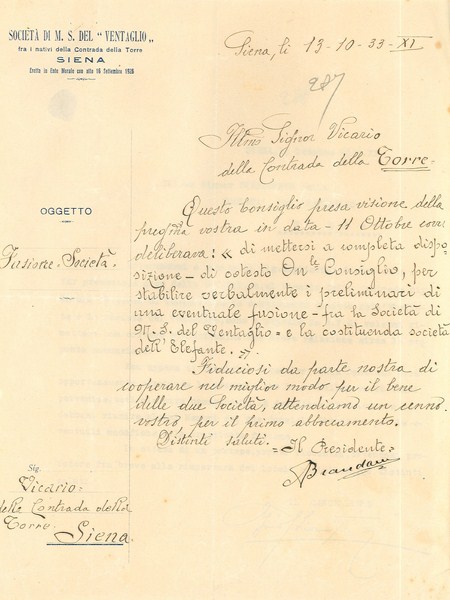 SOCIETÀ DI M. S. DEL "VENTAGLIO"
fra i nativi della Contrada della Torre
SIENA
Eretta in Ente Morale con atto 16 Settembre 1926
Siena, li 13-10-33-XI
Illmo Signor Vicario
della Contrada della Torre
OGGETTO
Fusione Società
Questo Consiglio presa visione della
pregma vostra in data - 11 Ottobre corr.
deliberava: « di mettersi a completa dispo-
sizione - di cotesto Onle Consiglio, per
stabilire verbalmente i preliminari di
una eventuale fusione - fra la Società di
M. S. del Ventaglio = e la costituenda società
dell'Elefante. »
Fiduciosi da parte nostra di
cooperare nel miglior modo per il bene
delle due Società, attendiamo un cenno
vostro, per il primo abboccamento.
Distinti saluti. = Il Presidente =
Sig.
Vicario
della Contrada della
Torre
Siena